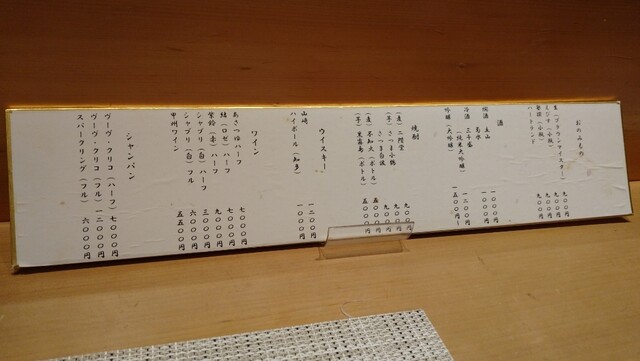 おのみもの
生(ブラウンマイスター) 九〇〇円
ヱビス(小瓶) 九〇〇円
ハートランド 九〇〇円
酒
立山
冷酒
吟醸(大吟醸) 一五〇〇円〜
焼酎
(麦)二階堂 九〇〇円
(芋)さつま小鶴 九〇〇円
(芋)さつま白波 九〇〇円
(麦)不知火(ボトル)
(芋)黒霧島(ボトル)
ウイスキー
山崎 一二〇〇円
ハイボール(知多) 一〇〇〇円
ワイン
あさつゆハーフ 七〇〇〇円
緒(ロゼ)ハーフ 七〇〇〇円
紫鈴(赤)ハーフ 九〇〇〇円
シャブリ(白)ハーフ 三〇〇〇円
シャブリ(白)フル 六〇〇〇円
甲州ワイン 五五〇〇円
シャンパン
ヴーヴ・クリコ(ハーフ) 七〇〇〇円
ヴーヴ・クリコ(フル) 一二〇〇〇円
スパークリング(フル) 六〇〇〇円